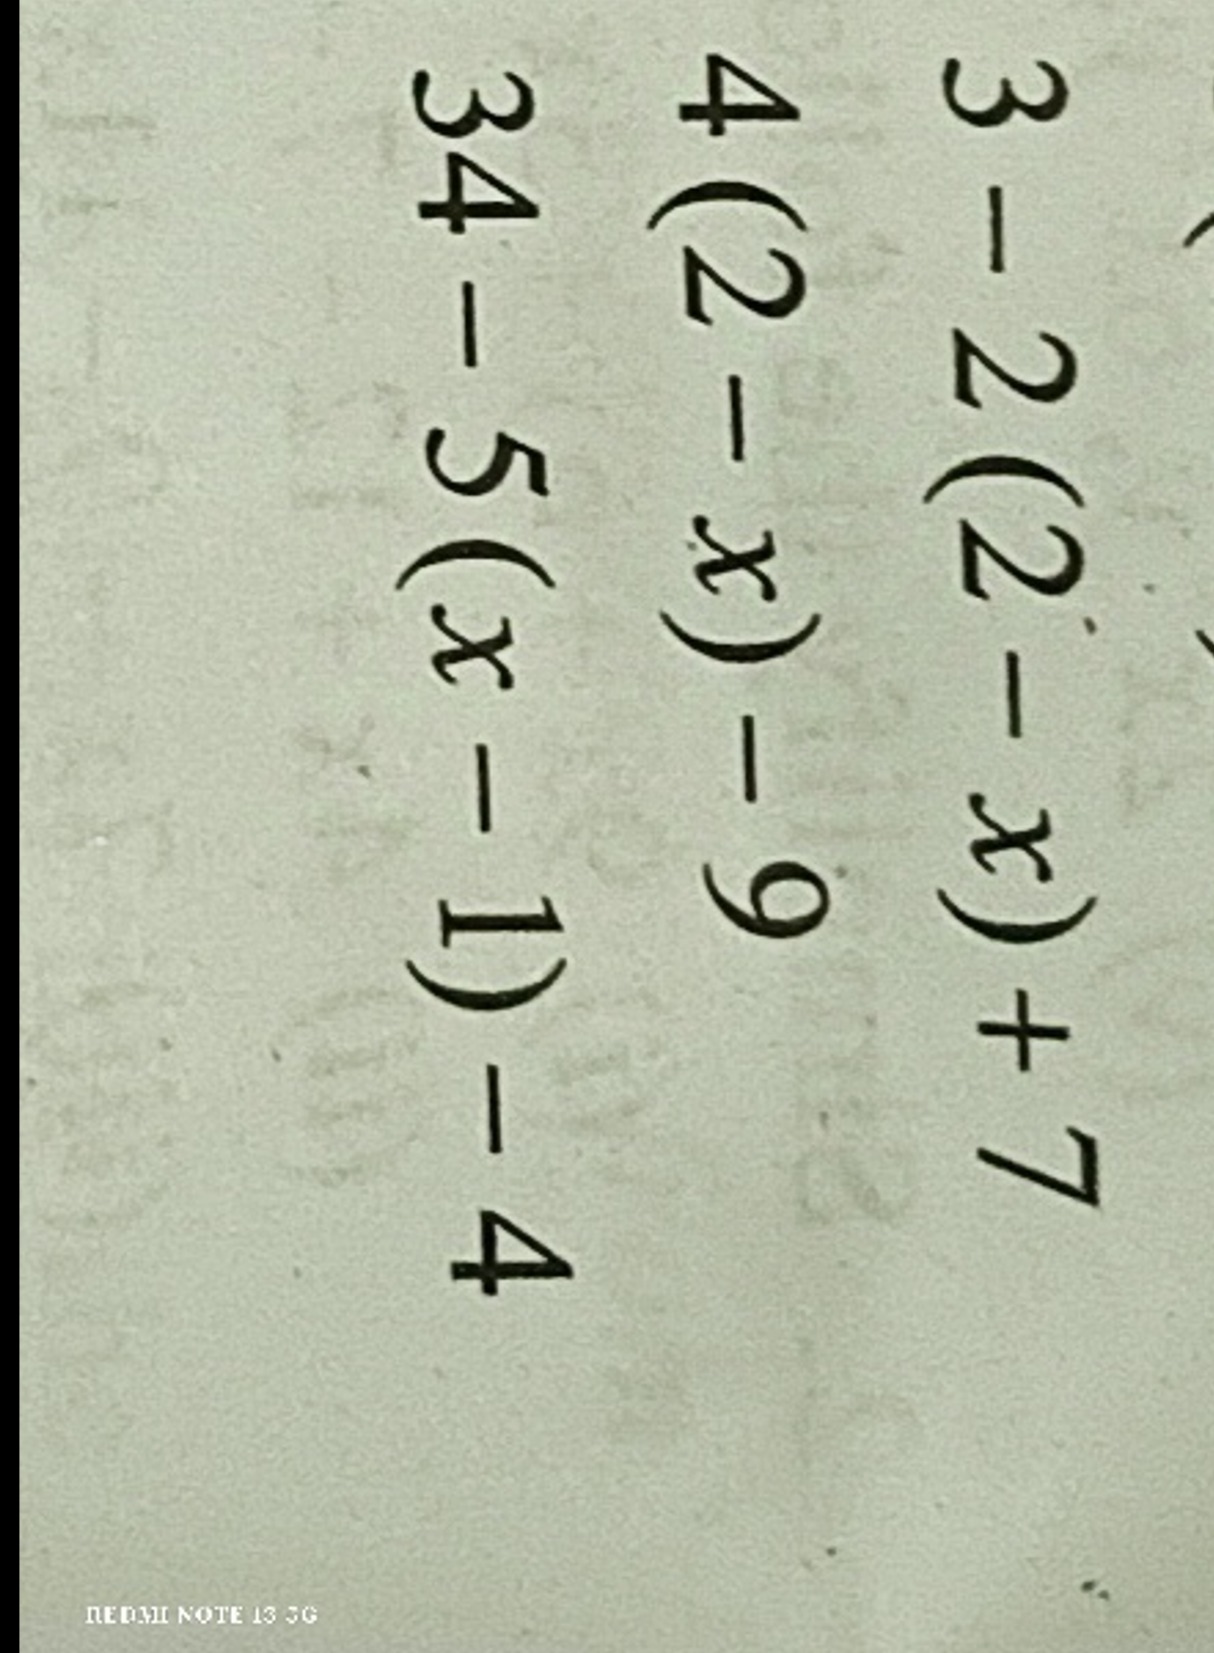 3 - 2(2 - x) + 7
4(2 - x) - 9
34 - 5(x - 1) - 4
REDMI NOTE 13 5G